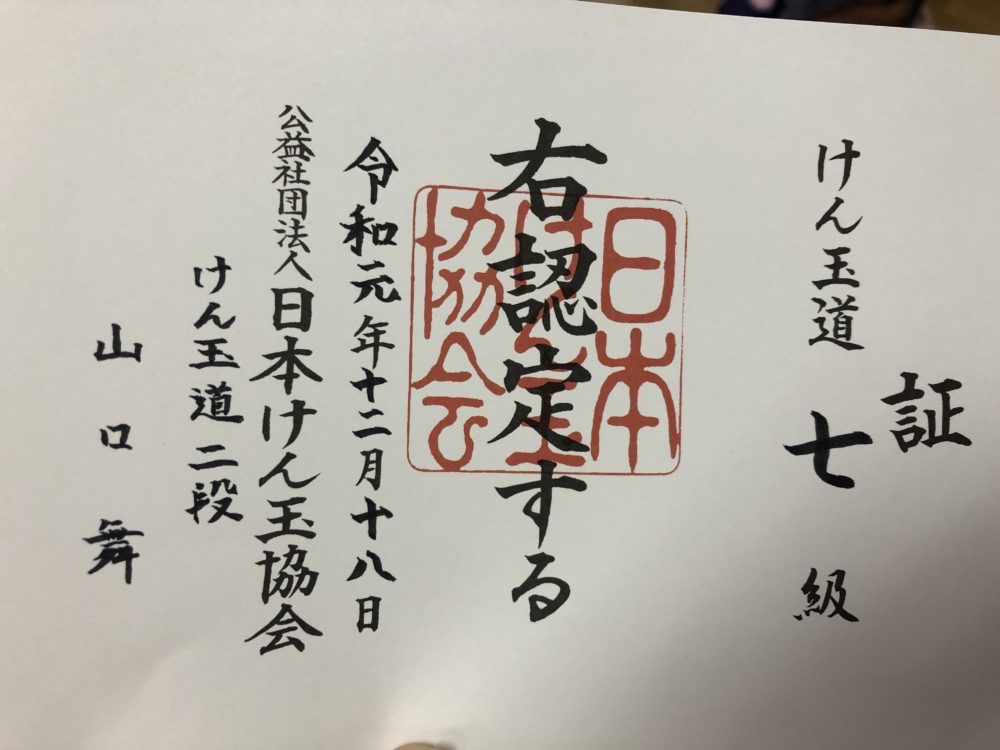 証
けん玉道 七級
右認定する
日本
けん玉
協会
令和元年十二月十八日
公益社団法人日本けん玉協会
けん玉道 二段
山口舞